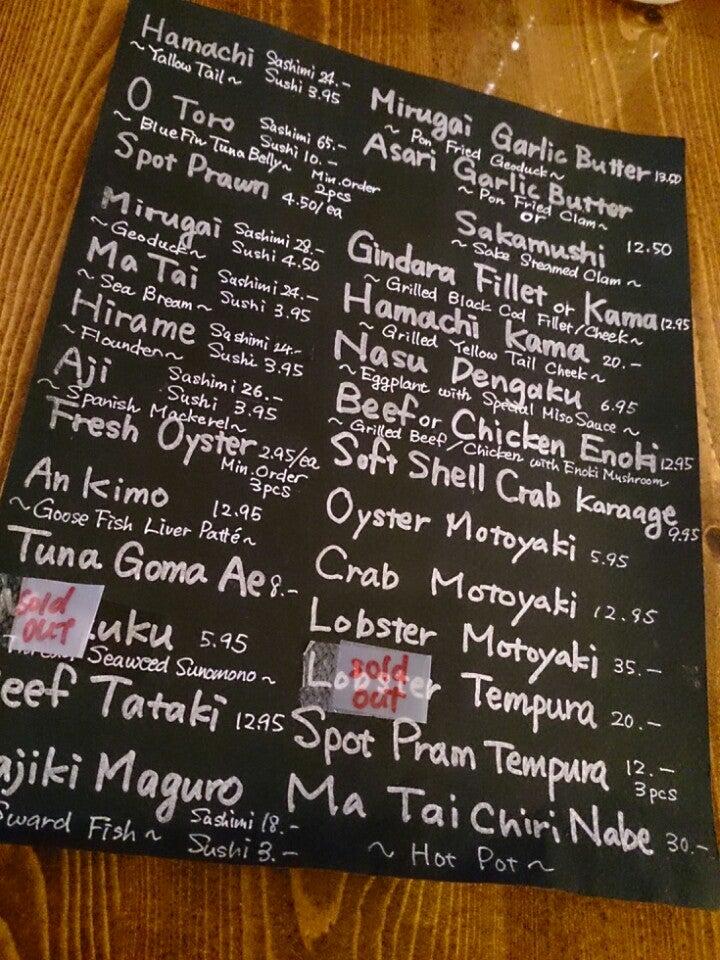 Hamachi Sashimi 24.-
~Yallow Tail~ Sushi 3.95
O Toro Sashimi 65.-
~BlueFin Tuna Belly~ Sushi 10.-
Spot Prawn Min.Order 2pcs
4.50/ea
Mirugai Sashimi 28.-
~Geoduck~ Sushi 4.50
Ma Tai Sashimi 24.-
~Sea Bream~ Sushi 3.95
Hirame Sashimi 24.-
~Flounder~ Sushi 3.95
Aji Sashimi 26.-
Sushi 3.95
~Spanish Mackerel~
Fresh Oyster 2.95/ea
Min.Order
3pcs
An Kimo 12.95
~Goose Fish Liver Patté~
Tuna Goma Ae 8.-
sold
OUT
uku 5.95
Seaweed Sunomono~
eef Tataki 12.95
ajiki Maguro Sashimi 18.-
Sward Fish~ Sushi 3.-
Mirugai Garlic Butter 13.50
~Pon Fried Geoduck~
Asari Garlic Butter
~Pon Fried Clam~
or
Sakamushi 12.50
~Sake Steamed Clam~
Gindara Fillet or Kama 12.95
~Grilled Black Cod Fillet/Cheek~
Hamachi Kama 20.-
~Grilled Yellow Tail Cheek~
Nasu Dengaku 6.95
~Eggplant with Special Miso Sauce~
Beef or Chicken Enoki 12.95
~Grilled Beef/Chicken with Enoki Mushroom
Soft Shell Crab Karaage 9.95
Oyster Motoyaki 5.95
Crab Motoyaki 12.95
Lobster Motoyaki 35.-
Lobster Tempura 20.-
sold
out
Spot Pram Tempura 12.-
3pcs
Ma Tai Chiri Nabe 30.-
~Hot Pot~